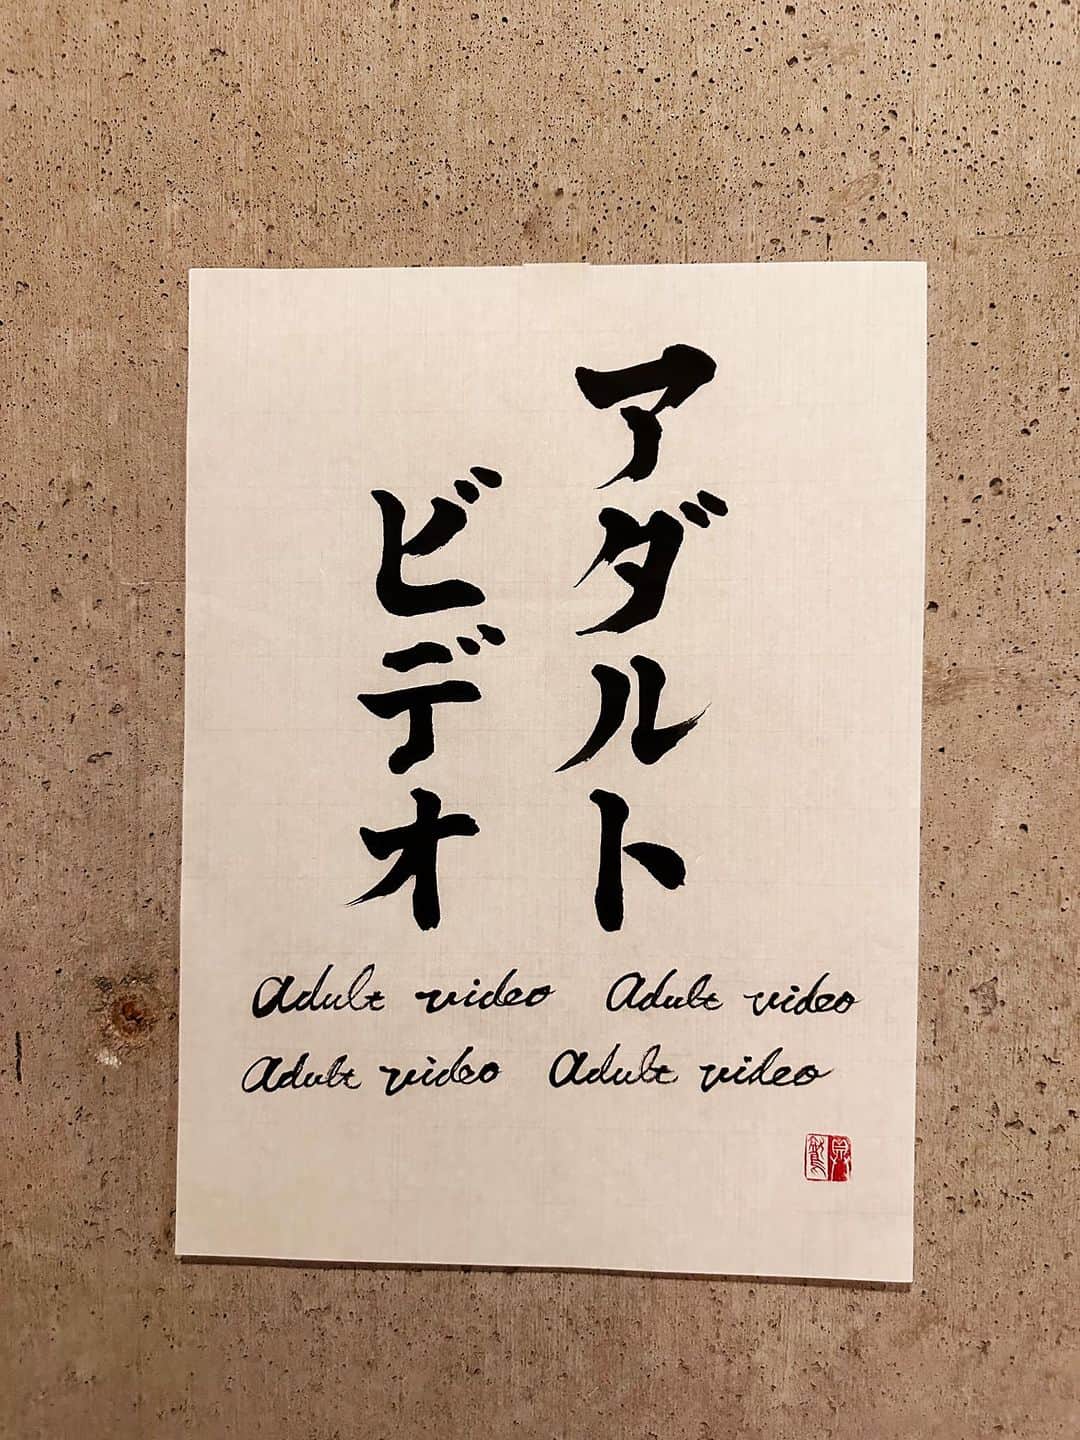 アダルト
ビデオ
adult video adult video
adult video adult video